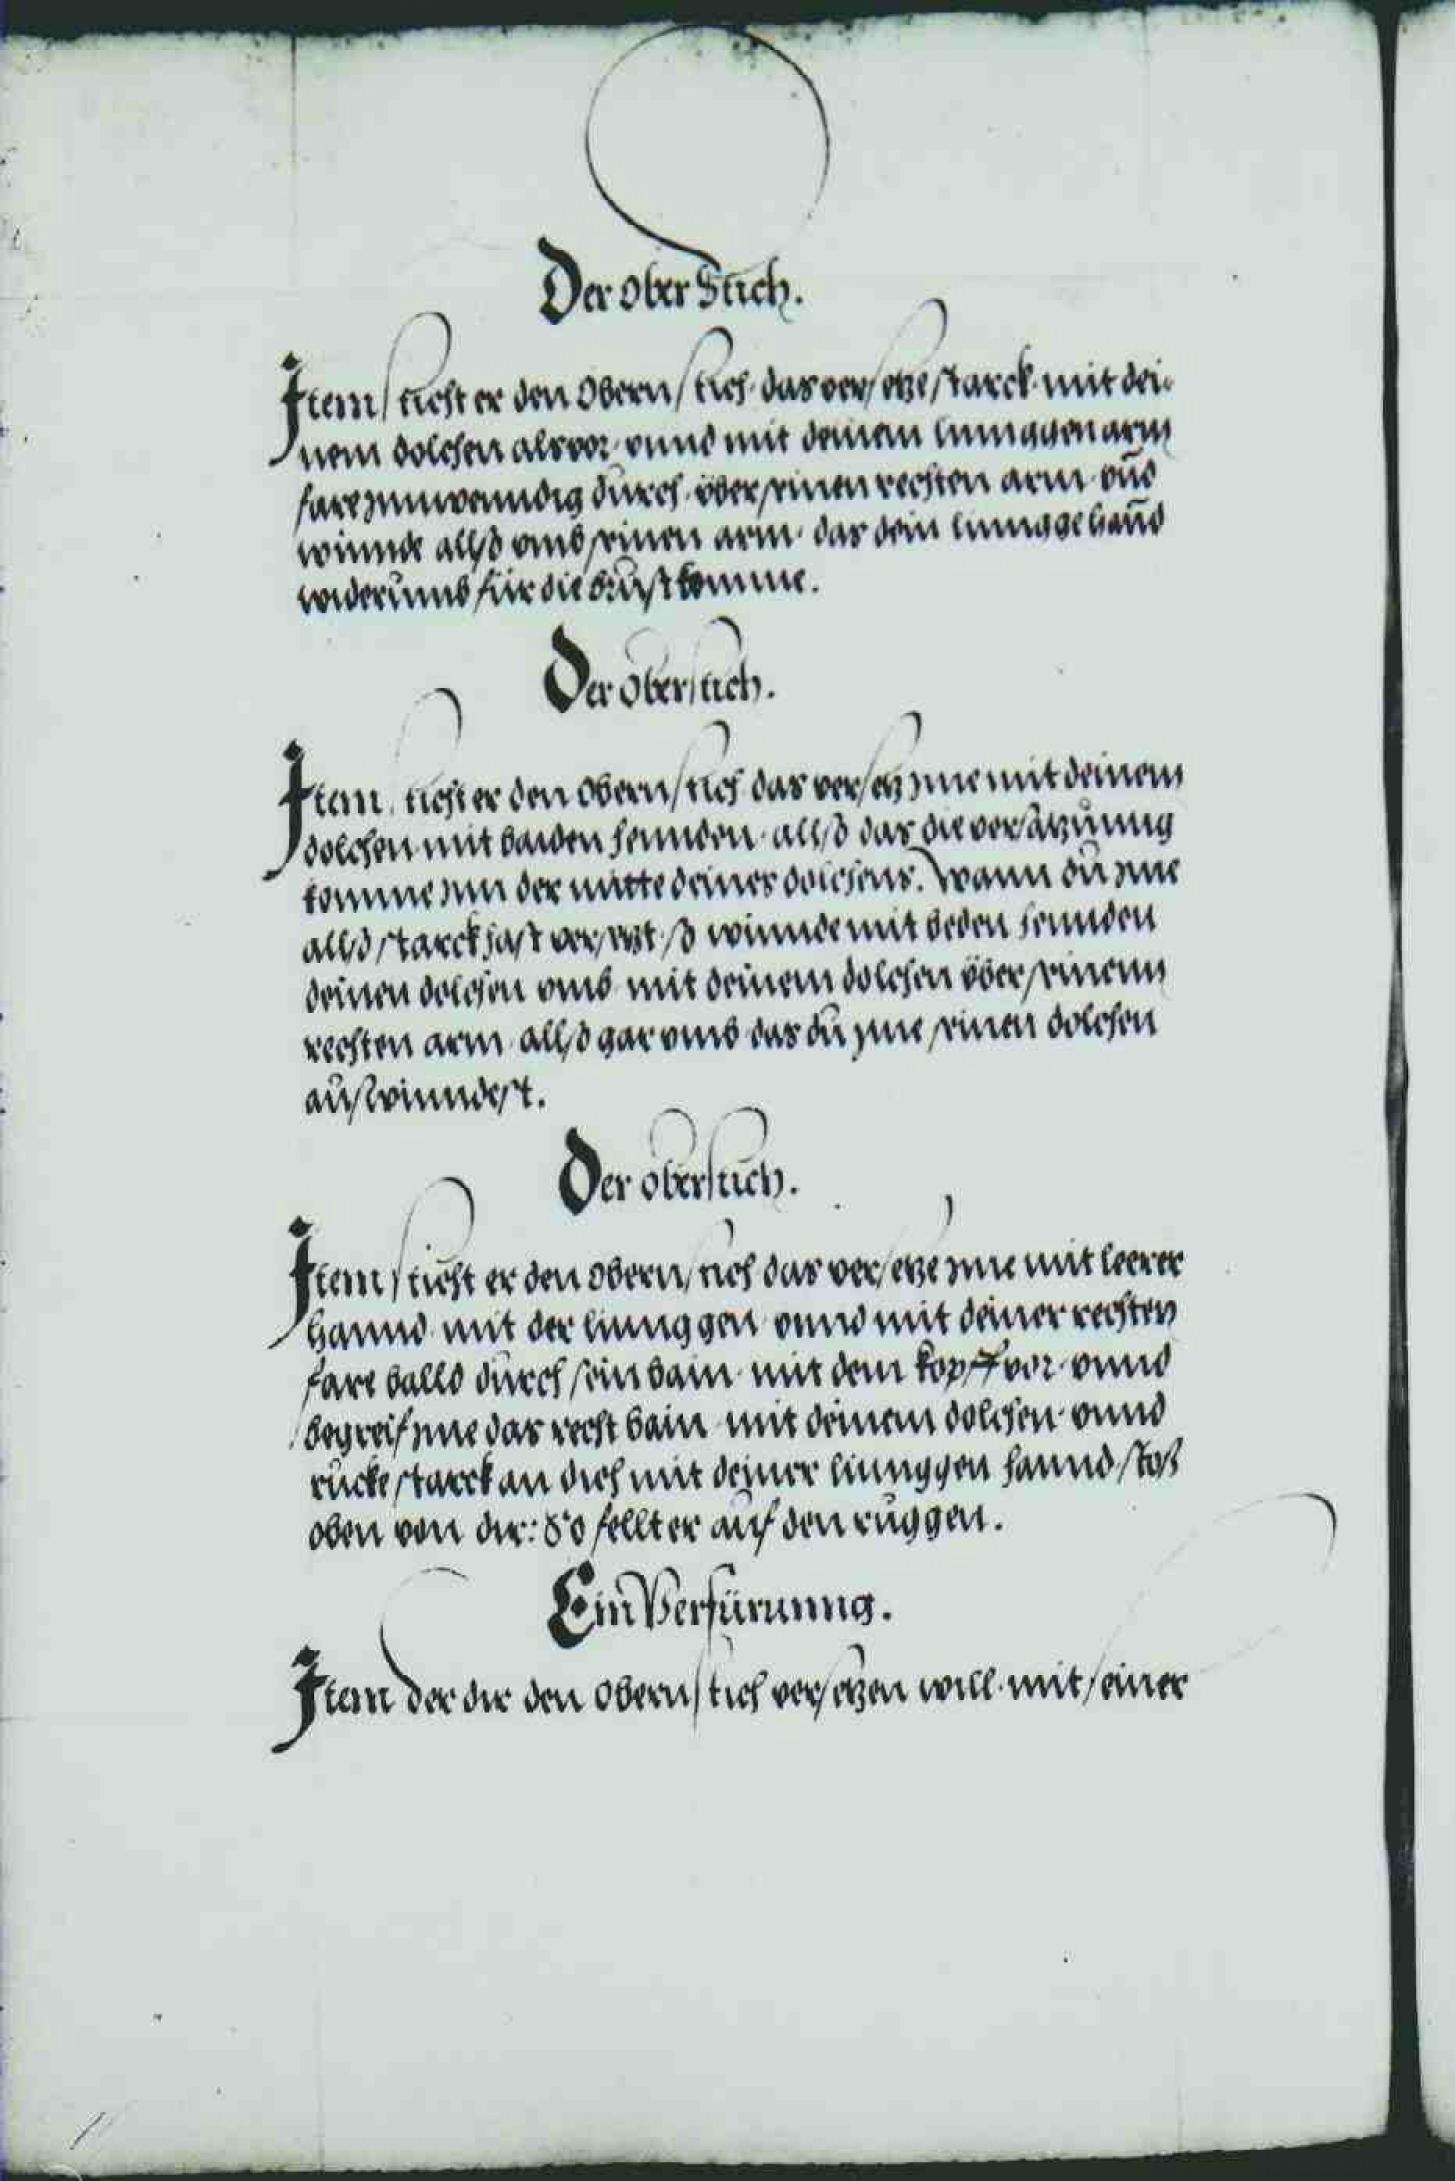 Der ober Stich.
Item sticht er den obern stich das versetze starck mit dei-
nem dolchen als vor vnnd mit deinem linnggen arm
fare ynnwenndig durch über seinen rechten arm vn̄d
winnde allso vmb seinen arm das dein lingge han̄d
widerumb für die brust komme.
Der oberstich.
Item sticht er den obern stich das versetz yme mit deinem
dolchen mit baiden hennden allso das die versatzunng
komme ynn der mitte deines dolchens. Wann du yme
allso starck hast versetzt so winnde mit beden hennden
deinen dolchen vmb mit deinem dolchen über seinenn
rechten arm allso gar vmb das du yme seinen dolchen
auswinndest.
Der oberstich.
Item sticht er den obern stich das versetze yme mit leerer
hannd mit der linnggen vnnd mit deiner rechten
fare balld durch sein bain mit dem kopff vor vnnd
begreif yme das recht bain mit deinem dolchen vnnd
rucke starck an dich mit deiner linnggen hannd stoß
oben von dir: So fellt er auf den ruggen.
Ein Verfürunng.
Item der dir den obern stich versetzen will mit seiner